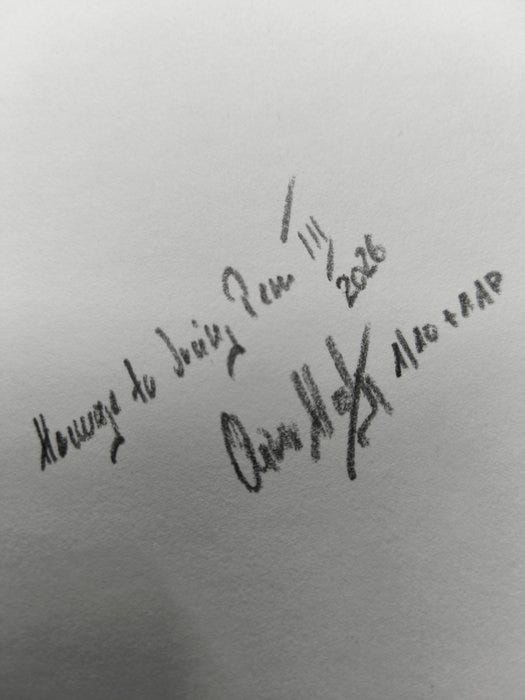 Homage to Irving Penn III, 2026
1/10 + 1AP